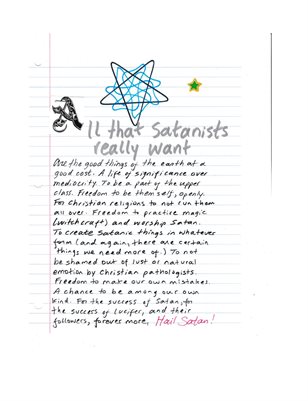 All that Satanists
really want
Are the good things of the earth at a
good cost. A life of significance over
mediocrity. To be a part of the upper
class. Freedom to be them self, openly.
For Christian religions to not run them
all over. Freedom to practice magic
(witchcraft) and worship Satan.
To create Satanic things in whatever
form (and again, there are certain
things we need more of.) To not
be shamed out of lust or natural
emotion by Christian pathologists.
Freedom to make our own mistakes.
A chance to be among our own
kind. For the success of Satan, for
the success of Lucifer, and their
followers, forever more, Hail Satan!